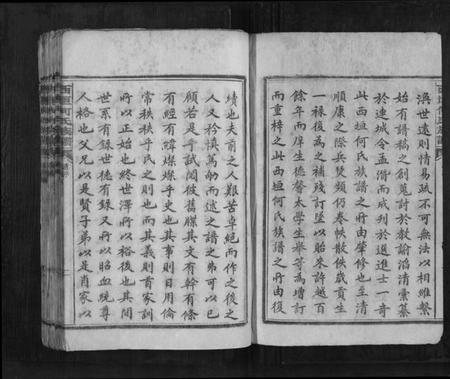 渙世遠則情易疏不可無法以相維繫
始有譜稿之創蒐討於教諭滔清彙纂
於連城令孟揩而成列於選進士一奇
此西垣何氏族譜之所由肇修也至清
順康之際兵燹頻仍卷帙散佚歲貢生
一祿後為之補殘訂墜以貽來許越百
餘年而庠生德馨太學生舉等為增訂
而重梓之此西垣何氏族譜之所由復
續也夫前之人艱苦卓絕而作之後之
人又矜慎篤勛而述之譜之弗可以已
顧若是乎試閱彼舊牒其文有幹有條
有經有緯燦燦乎史也其事則日用倫
常秩秩乎民之則也而其義則首家訓
所以正始也終世澤所以裕後也其間
世系有錄世德有錄又所以昭血統尊
人格也父兄以是賢子弟以是肖家以